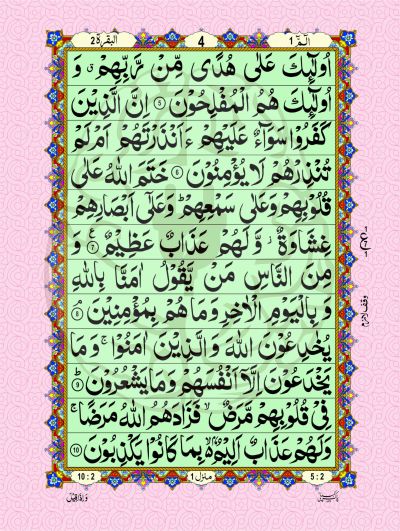 البقرة ٢
4
الٓمّٓ ١
اُولٰٓئِكَ عَلٰى هُدًى مِّنْ رَّبِّهِمْ ۗ وَ
اُولٰٓئِكَ هُمُ الْمُفْلِحُوْنَ ۝٥ اِنَّ الَّذِيْنَ
كَفَرُوْا سَوَآءٌ عَلَيْهِمْ ءَاَنْذَرْتَهُمْ اَمْ لَمْ
تُنْذِرْهُمْ لَا يُؤْمِنُوْنَ ۝٦ خَتَمَ اللّٰهُ عَلٰى
قُلُوْبِهِمْ وَعَلٰى سَمْعِهِمْ ؕ وَعَلٰٓى اَبْصَارِهِمْ
غِشَاوَةٌ ؗ وَّلَهُمْ عَذَابٌ عَظِيْمٌ ۝٧ وَ
مِنَ النَّاسِ مَنْ يَّقُوْلُ اٰمَنَّا بِاللّٰهِ
وَ بِالْيَوْمِ الْاٰخِرِ وَمَا هُمْ بِمُؤْمِنِيْنَ ۘ ۝٨
يُخٰدِعُوْنَ اللّٰهَ وَالَّذِيْنَ اٰمَنُوْا ۚ وَمَا
يَخْدَعُوْنَ اِلَّاۤ اَنْفُسَهُمْ وَمَا يَشْعُرُوْنَ ؕ ۝٩
فِيْ قُلُوْبِهِمْ مَّرَضٌ ۙ فَزَادَهُمُ اللّٰهُ مَرَضًا ۚ
وَلَهُمْ عَذَابٌ اَلِيْمٌۢ ۙ بِمَا كَانُوْا يَكْذِبُوْنَ ۝١٠
وقف لازم
10 : 2
منزل 1
5 : 2